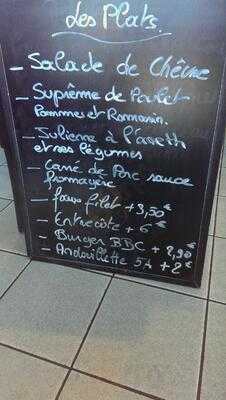 Les Plats.
- Salade de Chèvre
- Suprême de Poulet
Pommes et Romarin.
- Julienne à l'aneth
et ses légumes
- Carré de Porc sauce
fromagère
- faux filet + 3,50 €
- Entrecôte + 6 €
- Burger BBC + 2,90 €
- Andouillette 5A + 2 €